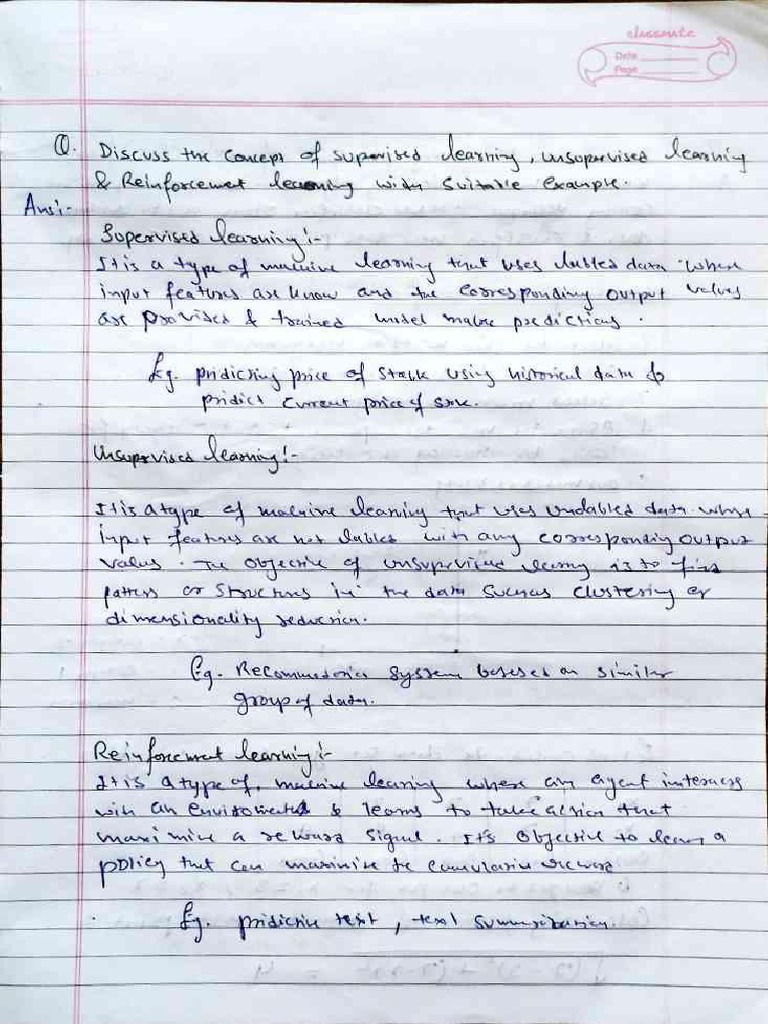 classmate
Date
Page
Q. Discuss the concept of supervised learning, unsupervised learning
& Reinforcement learning with suitable example.
Ans:-
Supervised learning:-
It is a type of machine learning that uses labled data where
input features are know and the corresponding output values
are provided & trained model makes predictions.
Eg. pridicting price of stock using historical data to
pridict current price of
Unsupervised learning:-
It is a type of machine learning that uses unlabled data where
input features are not labled with any corresponding output
values. The objective of unsupervised learning is to find
pattern or structures in the data such as clustering or
dimensionality reduction.
Eg. system based on similar
group of data.
Reinforcement learning:-
It is a type of machine learning where an agent interacts
with an & learns to take action that
a reward signal. It's objective to learn a
policy that can maximize the cumulative reward
Eg. text, text